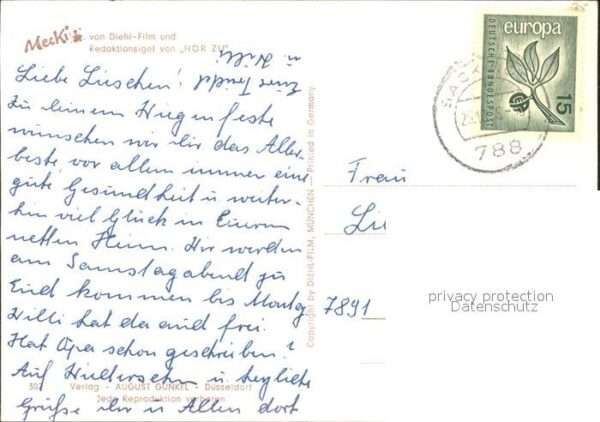 Mecki
von Diehl-Film und
Redaktionsigel von „HÖR ZU“
u. Willi
Eure Trudl
Liebe Lieschen!
Zu einem Wiegenfeste
wünschen wir dir das Aller-
beste, vor allem immer eine
gute Gesundheit u. weiter-
hin viel Glück in Eurem
netten Heim. Wir werden
am Samstagabend zu
Euch kommen bis Montag
Willi hat da auch frei.
Hat Opa schon geschrieben?
Auf Wiedersehn u. herzliche
Grüße dir u. Allen dort
307 Verlag - AUGUST GUNKEL - Düsseldorf
Jede Reproduktion verboten
Copyright by DIEHL-FILM, MÜNCHEN — Printed in Germany
europa
DEUTSCHE BUNDESPOST
15
CEPT
788
Frau
Lie
7891
privacy protection
Datenschutz